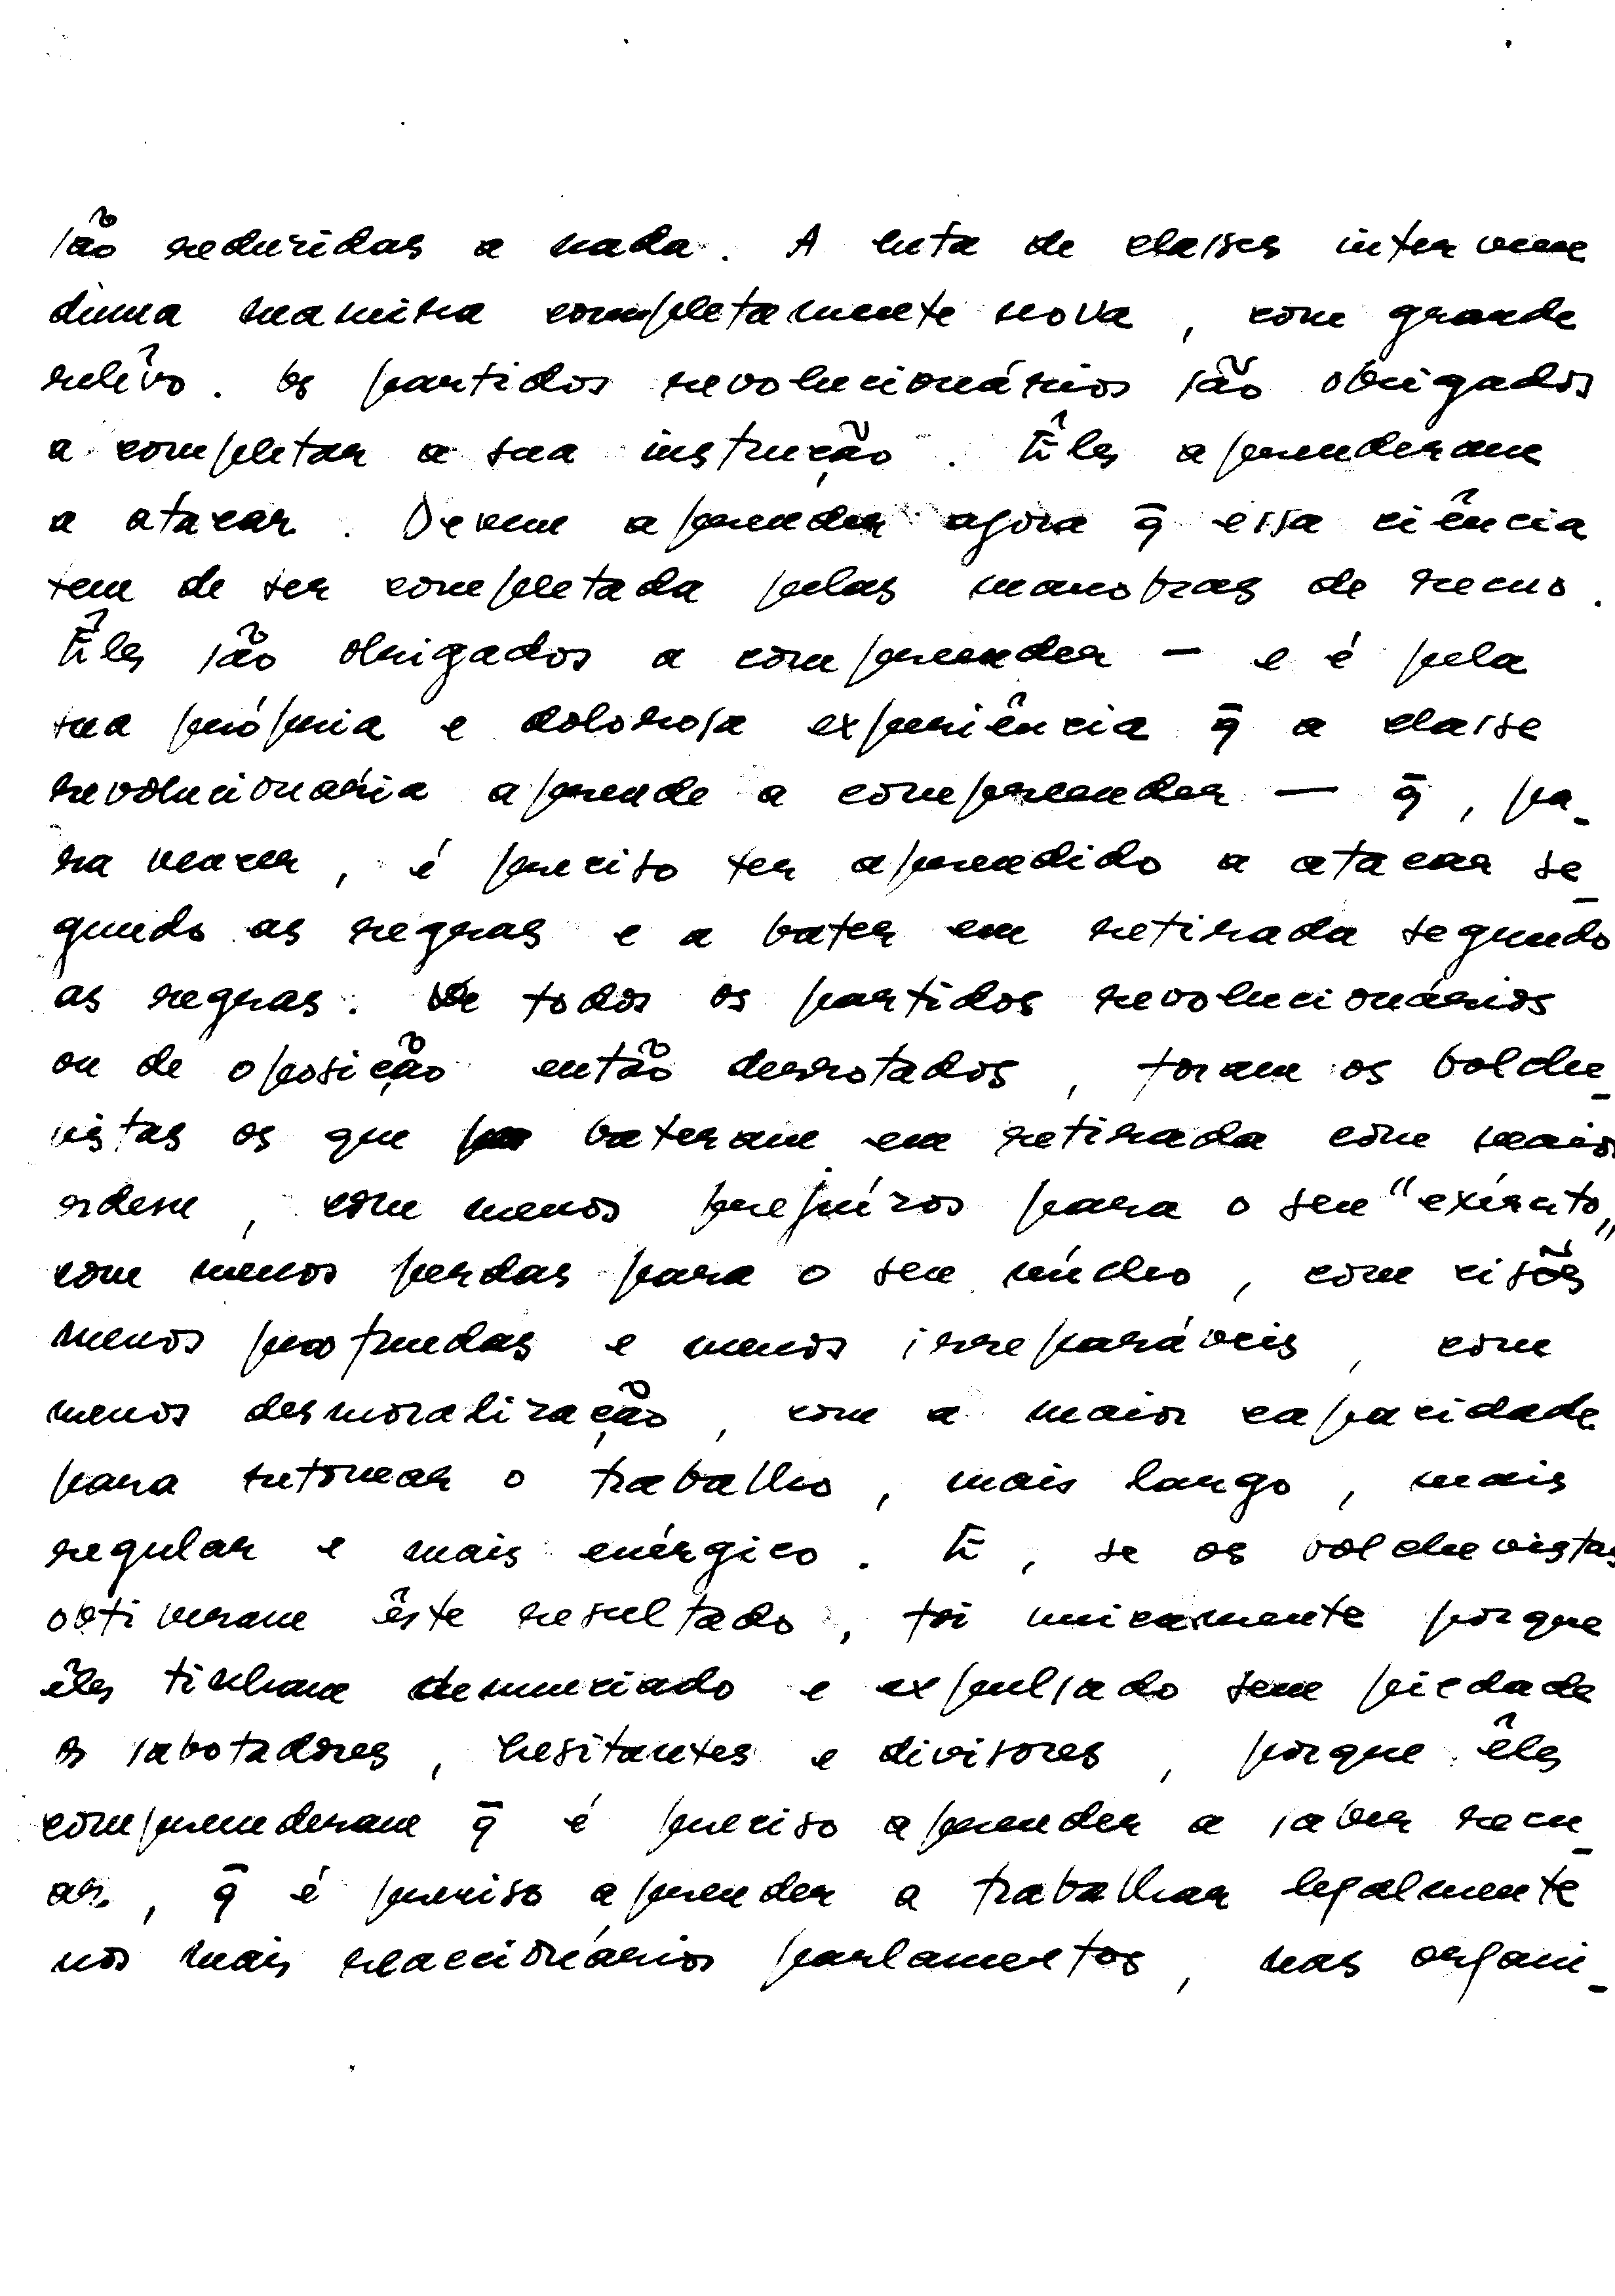 são reduzidas a nada. A luta de classes intervem
duma maneira completamente nova, com grande
relêvo. Os partidos revolucionários são obrigados
a completar a sua instrução. Êles aprenderam
a atacar. Devem aprender agora q̄ essa ciência
tem de ser completada pelas manobras de recuo.
Êles são obrigados a compreender — e é pela
sua própria e dolorosa experiência q̄ a classe
revolucionária aprende a compreender — q̄, pa-
ra vencer, é preciso ter aprendido a atacar se-
gundo as regras e a bater em retirada segundo
as regras. De todos os partidos revolucionários
ou de oposição então derrotados, foram os bolche-
vistas os que bateram em retirada com maior
ordem, com menos prejuízos para o seu "exército",
com menos perdas para o seu núcleo, com cisões
menos profundas e menos irreparáveis, com
menos desmoralização, com a maior capacidade
para retomar o trabalho, mais largo, mais
regular e mais enérgico. E, se os bolchevistas
obtiveram êste resultado, foi unicamente porque
êles tinham denunciado e expulsado sem piedade
os sabotadores, hesitantes e divisores, porque êles
compreenderam q̄ é preciso aprender a saber recu-
ar, q̄ é preciso aprender a trabalhar legalmente
nos mais reaccionários parlamentos, nas organi-